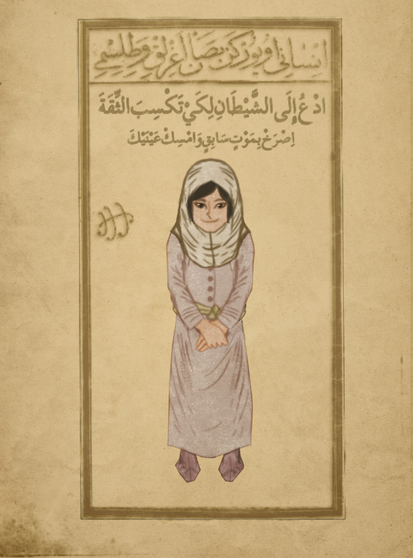 انسانى اويوركن بصان اغرلق وطلسمى
ادْعُ إِلَى الشَّيْطَانِ لِكَيْ تَكْسِبَ الثِّقَةَ
اِصْرَخْ بِمَوْتٍ سَابِقٍ وَامْسِكْ عَيْنَيْكَ